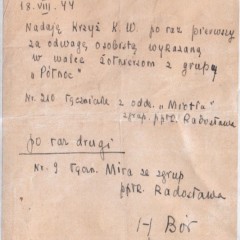 18. VIII. 44
Nadaję Krzyż K. W. po raz pierwszy
za odwagę osobistą wykazaną
w walce żołnierzom z grupy
„Północ"
Nr. 210 łączniczce z oddz. „Miotła"
zgrup. ppłk. Radosława
po raz drugi
Nr. 9 łączn. Mira ze zgrup
ppłk. Radosława
/-/ Bór